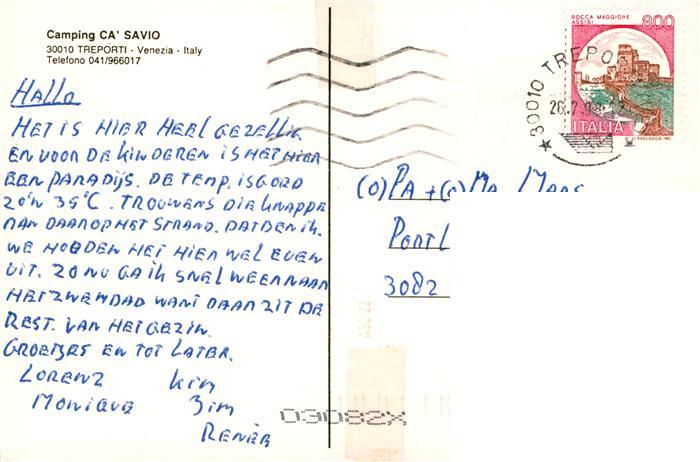 Camping CA' SAVIO
30010 TREPORTI - Venezia - Italy
Telefono 041/966017
HALLO
HET IS HIER HEEL GEZELLIG
EN VOOR DE KINDEREN IS HET HIER
EEN PARADIJS. DE TEMP. IS GOED
ZO'N 35°C. TROUWENS DIE KNAPPE
MAN DAAR OP HET STRAND. DAT BEN IK.
WE HOUDEN HET HIER WEL EVEN
UIT. ZO NU GA IK SNEL WEER NAAR
HET ZWEMBAD WANT DAAR ZIT DE
REST. VAN HET GEZIN.
GROETJES EN TOT LATER.
LORENZ KIM
MONIQUE JIM
RENÉE
ROCCA MAGGIORE
ASSISI
800
ITALIA
30010 TREPO
(O)PA + (O)MA
PORTL
3082
03082X